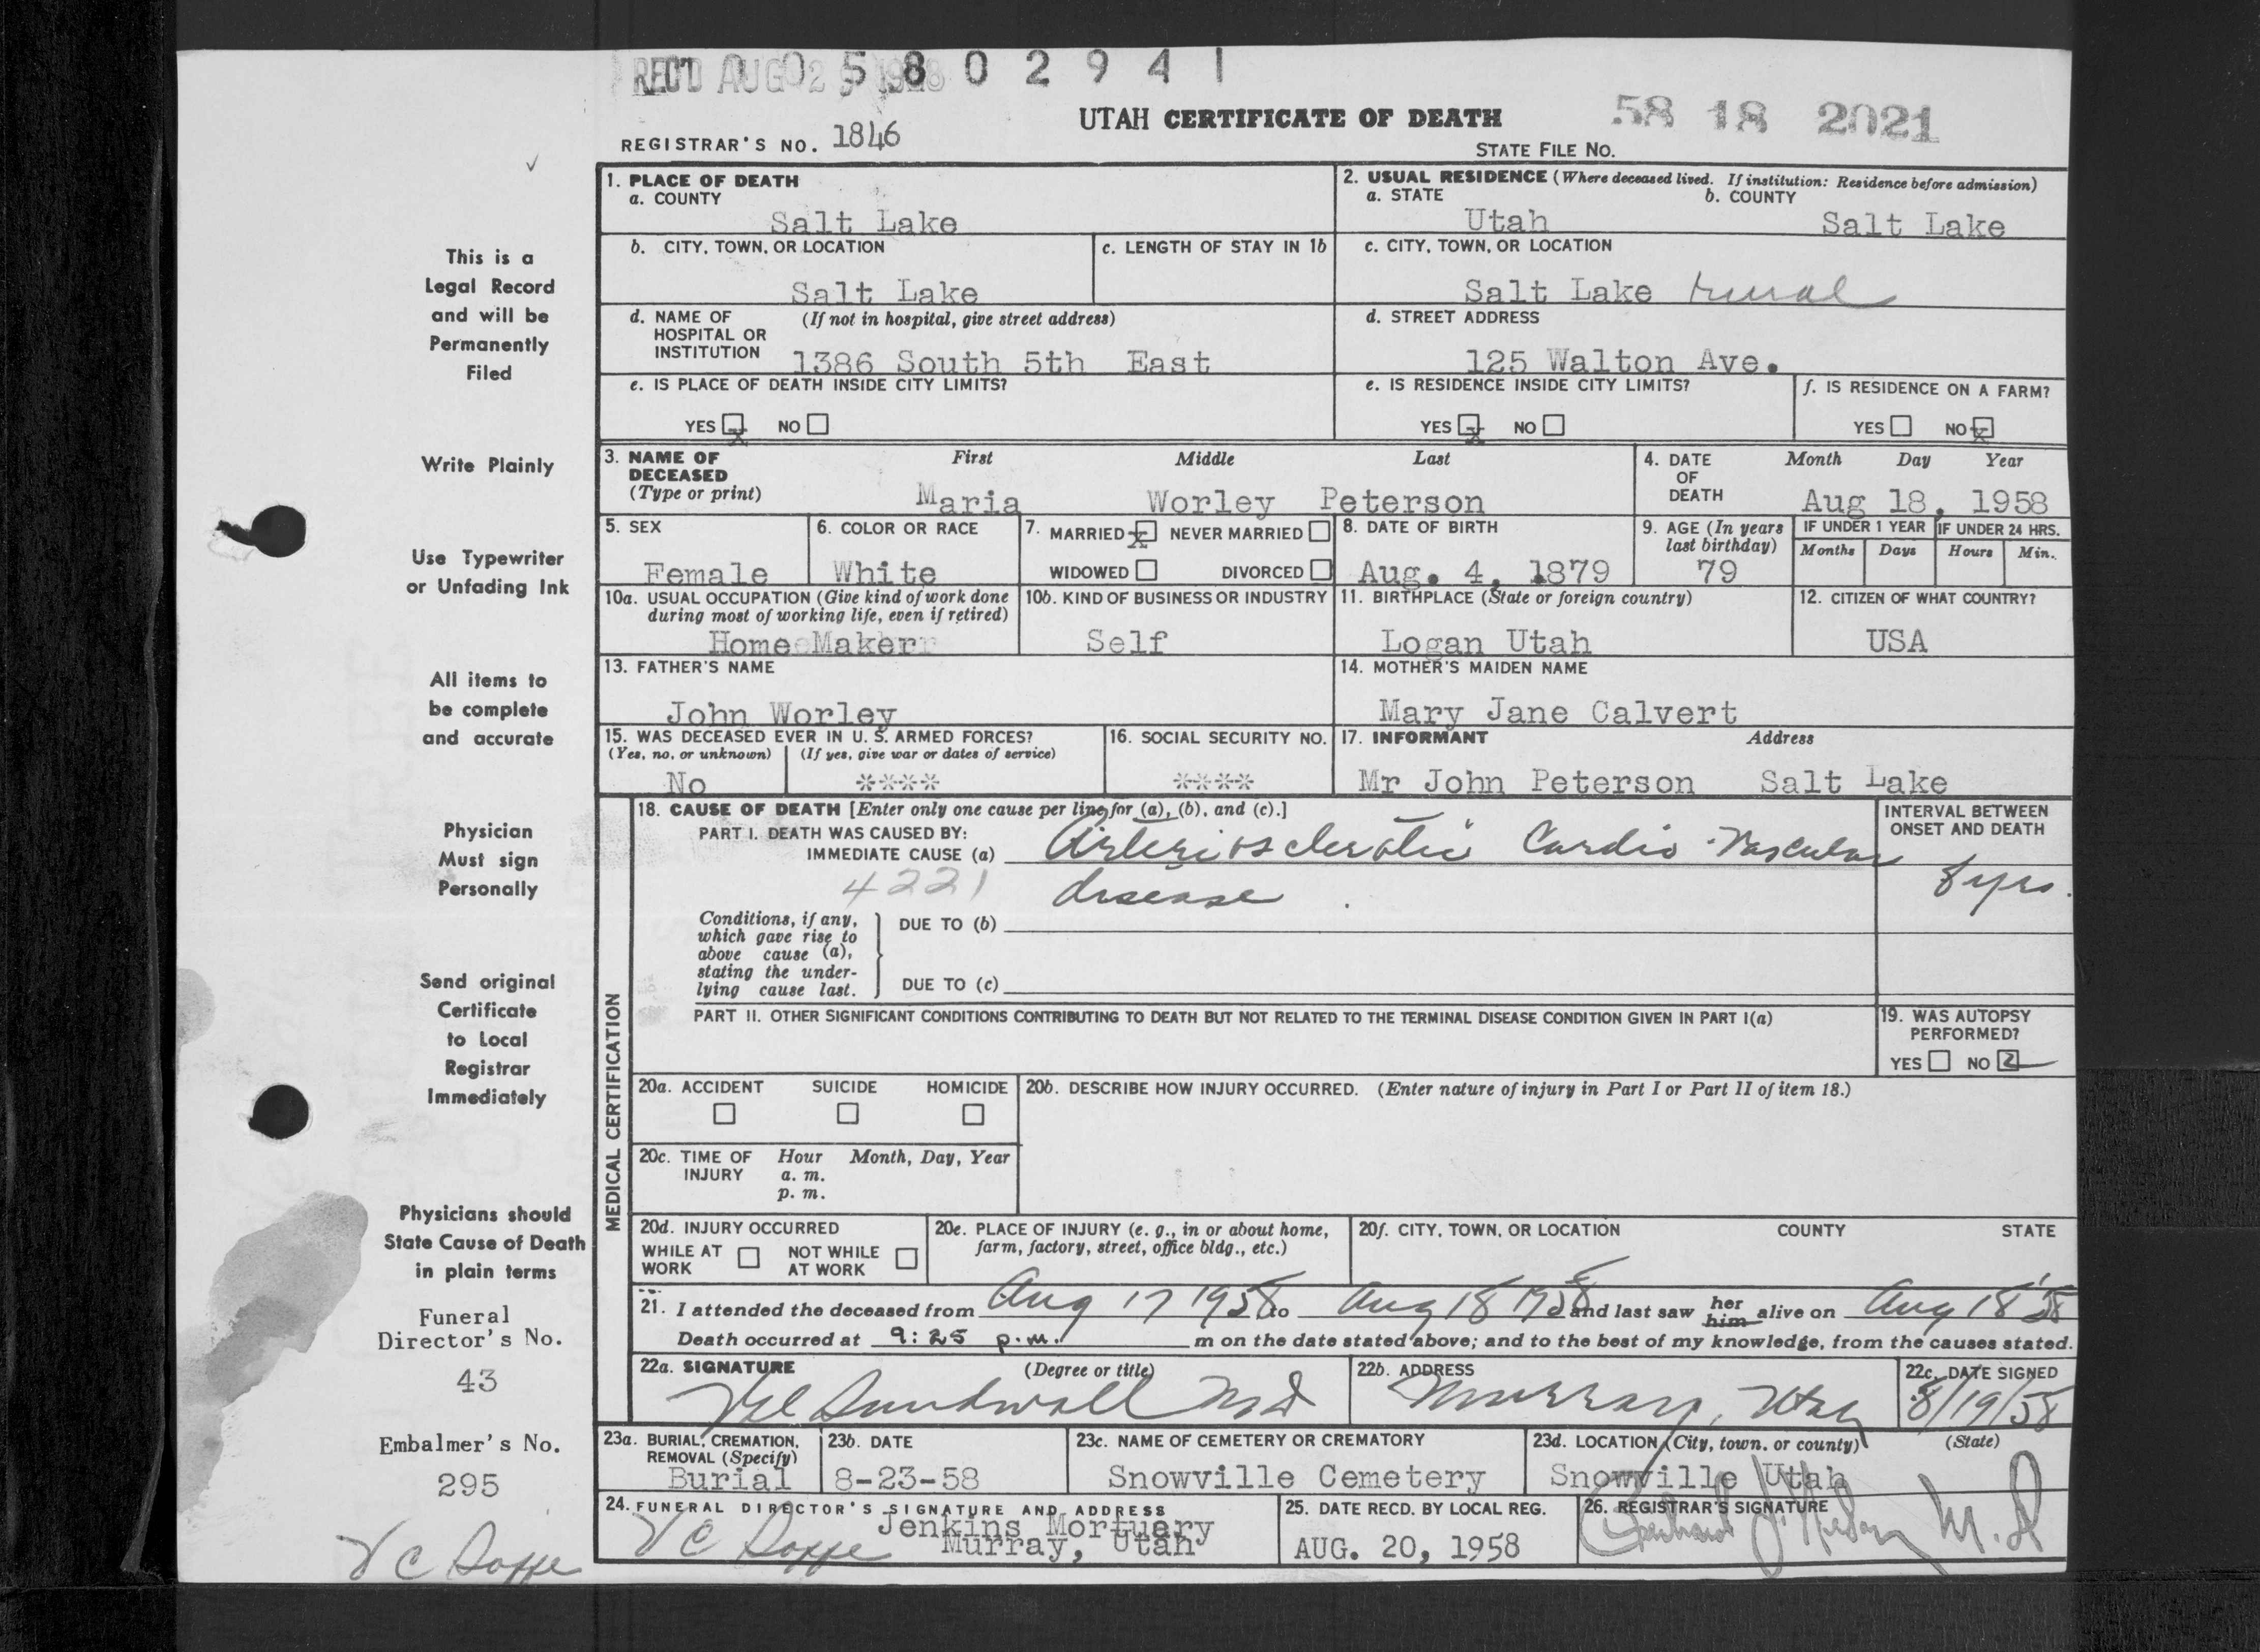 REC'D AUG 2 1958
0 5 8 0 2 9 4 1
UTAH CERTIFICATE OF DEATH
58 18 2021
REGISTRAR'S NO. 1846
STATE FILE NO.
1. PLACE OF DEATH
a. COUNTY
Salt Lake
2. USUAL RESIDENCE (Where deceased lived. If institution: Residence before admission)
a. STATE b. COUNTY
Utah Salt Lake
b. CITY, TOWN, OR LOCATION
Salt Lake
c. LENGTH OF STAY IN 1b
c. CITY, TOWN, OR LOCATION
Salt Lake rural
d. NAME OF HOSPITAL OR INSTITUTION (If not in hospital, give street address)
1386 South 5th East
d. STREET ADDRESS
125 Walton Ave.
e. IS PLACE OF DEATH INSIDE CITY LIMITS?
YES X NO
e. IS RESIDENCE INSIDE CITY LIMITS?
YES X NO
f. IS RESIDENCE ON A FARM?
YES NO X
3. NAME OF DECEASED (Type or print)
First Middle Last
Maria Worley Peterson
4. DATE OF DEATH
Month Day Year
Aug 18, 1958
5. SEX
Female
6. COLOR OR RACE
White
7. MARRIED X NEVER MARRIED
WIDOWED DIVORCED
8. DATE OF BIRTH
Aug. 4, 1879
9. AGE (In years last birthday)
79
IF UNDER 1 YEAR
Months Days
IF UNDER 24 HRS.
Hours Min.
10a. USUAL OCCUPATION (Give kind of work done during most of working life, even if retired)
Home Maker
10b. KIND OF BUSINESS OR INDUSTRY
Self
11. BIRTHPLACE (State or foreign country)
Logan Utah
12. CITIZEN OF WHAT COUNTRY?
USA
13. FATHER'S NAME
John Worley
14. MOTHER'S MAIDEN NAME
Mary Jane Calvert
15. WAS DECEASED EVER IN U. S. ARMED FORCES?
(Yes, no, or unknown) (If yes, give war or dates of service)
No ****
16. SOCIAL SECURITY NO.
****
17. INFORMANT Address
Mr John Peterson Salt Lake
MEDICAL CERTIFICATION
18. CAUSE OF DEATH [Enter only one cause per line for (a), (b), and (c).]
PART I. DEATH WAS CAUSED BY:
IMMEDIATE CAUSE (a) Arteriosclerotic Cardio-Vascular
4221 disease
INTERVAL BETWEEN ONSET AND DEATH
8 yrs.
Conditions, if any, which gave rise to above cause (a), stating the underlying cause last.
DUE TO (b)
DUE TO (c)
PART II. OTHER SIGNIFICANT CONDITIONS CONTRIBUTING TO DEATH BUT NOT RELATED TO THE TERMINAL DISEASE CONDITION GIVEN IN PART I(a)
19. WAS AUTOPSY PERFORMED?
YES NO
20a. ACCIDENT SUICIDE HOMICIDE
20b. DESCRIBE HOW INJURY OCCURRED. (Enter nature of injury in Part I or Part II of item 18.)
20c. TIME OF INJURY Hour Month, Day, Year
a. m.
p. m.
20d. INJURY OCCURRED
WHILE AT WORK NOT WHILE AT WORK
20e. PLACE OF INJURY (e. g., in or about home, farm, factory, street, office bldg., etc.)
20f. CITY, TOWN, OR LOCATION COUNTY STATE
21. I attended the deceased from Aug 17 1958 to Aug 18 1958 and last saw her him alive on Aug 18 '58
Death occurred at 9:25 p.m. m on the date stated above; and to the best of my knowledge, from the causes stated.
22a. SIGNATURE (Degree or title)
Sundwall MD
22b. ADDRESS
Murray, Utah
22c. DATE SIGNED
8/19/58
23a. BURIAL, CREMATION, REMOVAL (Specify)
Burial
23b. DATE
8-23-58
23c. NAME OF CEMETERY OR CREMATORY
Snowville Cemetery
23d. LOCATION (City, town, or county) (State)
Snowville Utah
24. FUNERAL DIRECTOR'S SIGNATURE AND ADDRESS
Jenkins Mortuary
Murray, Utah
25. DATE RECD. BY LOCAL REG.
AUG. 20, 1958
26. REGISTRAR'S SIGNATURE
M.D.
This is a
Legal Record
and will be
Permanently
Filed
Write Plainly
Use Typewriter
or Unfading Ink
All items to
be complete
and accurate
Physician
Must sign
Personally
Send original
Certificate
to Local
Registrar
Immediately
Physicians should
State Cause of Death
in plain terms
Funeral
Director's No.
43
Embalmer's No.
295